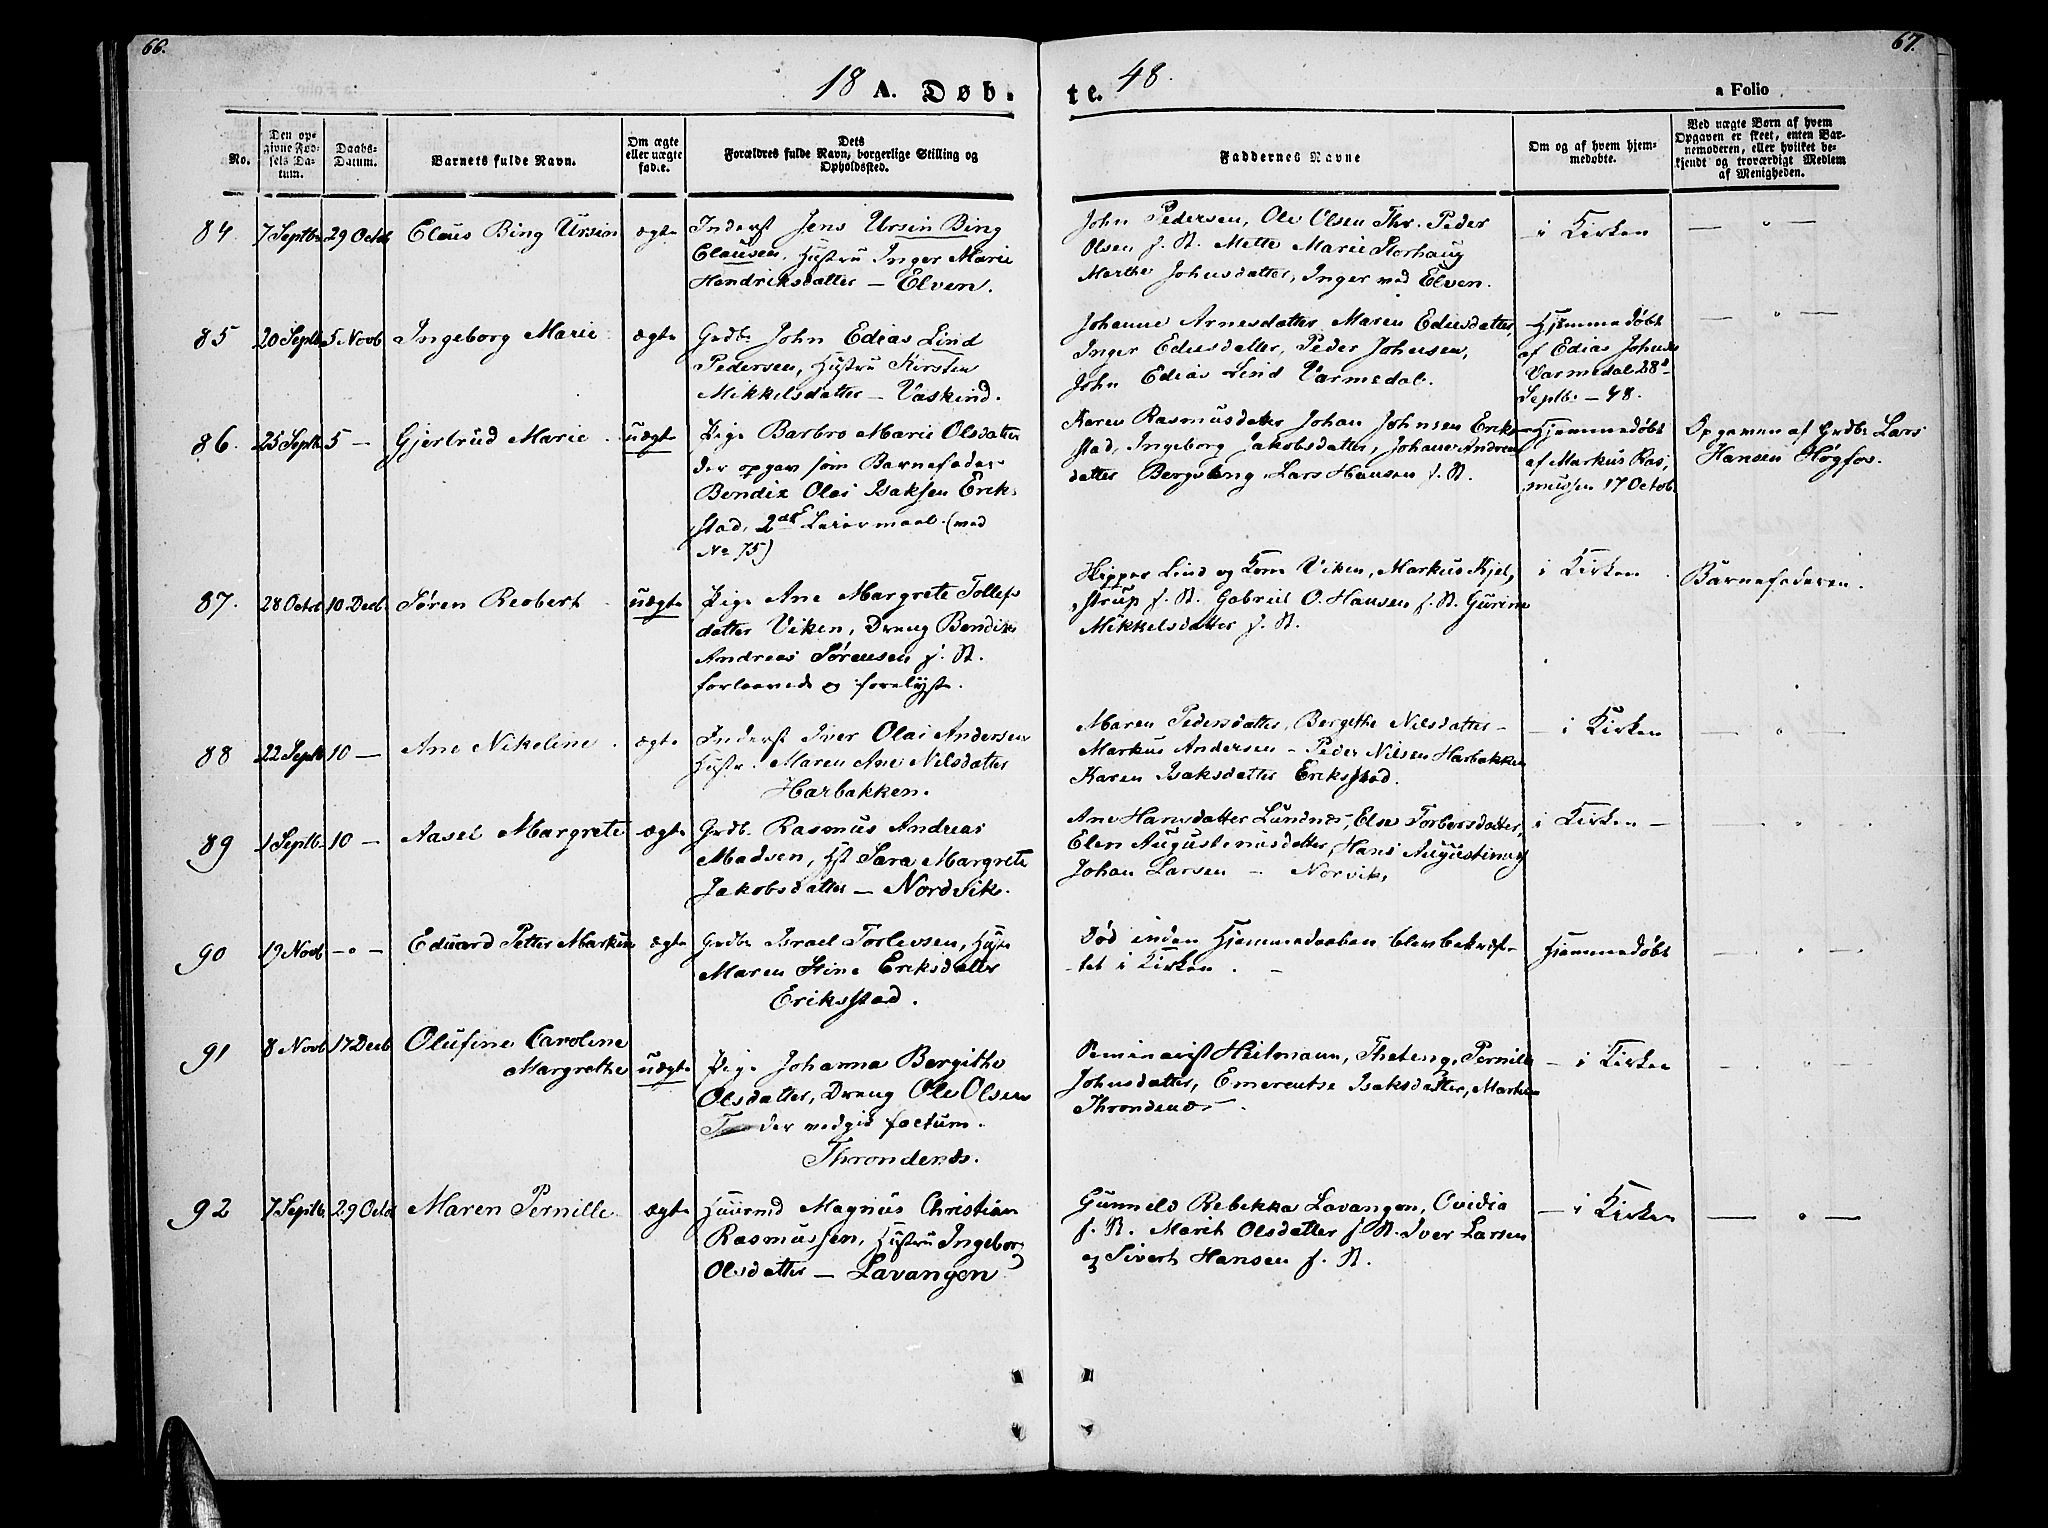 66.
67.
18 A. Døb.
te. 48.
a Folio
No.
Den op-
givne Fød-
sels Da-
tum.
Daabs-
Datum.
Barnets fulde Navn.
Om ægte
eller uægte
født.
Dets
Forældres fulde Navn, borgerlige Stilling og
Opholdssted.
Faddernes Navne
Om og af hvem hjem-
medøbte.
Ved uægte Børn af hvem
Opgaven er skeet, enten Bar-
nemoderen, eller hvilket be-
kjendt og troværdigt Medlem
af Menigheden.
84. 7 Septbr 29 Octb Claus Bing Ursin ægte Inderst Jens Ursin Bing
Clausen, Hustru Inger Marie
Hendriksdatter – Elven.
John Pedersen, Ole Olsen Thr. Peder
Olsen f. St. Mette Marie Storhaug
Marthe Johnsdatter, Inger Elven.
– i Kirken
85 20 Septb 5 Novb Ingeborg Marie ægte Grdb. John Edias Lind
Pedersen, Hustru Kirsten
Mikkelsdatter – Vaskind.
Johanne Arnesdatter Maren Ediasdatter,
Inger Ediasdatter, Peder Johnsen,
John Edias Lind Varmedal.
Hjemmedøbt
af Edias Johns
Varmedal 28d
Septb. – 48.
86. 25 Septb. 5 – Gjertrud Marie uægte Pige Barbro Marie Olsdatter
der opgav som Barnefader
Bendix Olai Isaksen Erik-
stad, 2det Leiermaal. (med
No 75)
Karen Rasmusdatter Johan Johnsen Erik-
stad, Ingeborg Jakobsdatter, Johan Andreas
datter Bergsteng Lars Hansen f. St.
Hjemmedøbt
af Markus Ras-
mussen 17 Octob.
Opgaven af Grdbr Lars
Hansen Høgfos.
87. 28 Octb 10 Decb. Søren Reobert uægte Pige Ane Margrete Tollefs
datter Viken, Dreng Bendix
Andreas Sørensen f. St.
forlovede og forelyste.
Skipper Lind og Kone Viken, Markus Kjel-
strup f. St. Gabriel O. Hansen f. St. Gurine
Mikkelsdatter f. St.
– i Kirken
Barnefaderen.
88 22 Septb 10 – Ane Nikeline. ægte Inderst Iver Olai Andersen
Hustr. Maren Ane Nilsdatter
Harbakken.
Maren Pedersdatter, Bergethe Nilsdatter –
Markus Andersen – Peder Nilsen Harbakken
Karen Isaksdatter Erikstad.
– i Kirken
89 1 Septb. 10 – Aasel Margrete ægte Grdb. Rasmus Andreas
Madsen, Hst Sara Margrete
Jakobsdatter – Nordvik.
Ane Hansdatter Lundnes, Else Torbersdatter,
Elen Augustinusdatter, Hans Augustinus
Johan Larsen – Norvik.
i Kirken –
90 19 Novb – " – Eduard Petter Markus ægte Grdb. Israel Torlevsen, Hust
Maren Stine Eriksdatter
Eriksstad.
Død inden Hjemmedaaben blev bekræf-
tet i Kirken. –
Hjemmedøbt
91 8 Novb 17 Decb Olufine Caroline
Margrethe uægte Pige Johanna Bergithe
Olsdatter, Dreng Ole Olsen
der vedgik factum.
Throndenæs.
Seminarist Heitmann, Theteng, Pernille
Johnsdatter, Emerentse Isaksdatter, Markus
Throndenæs.
– i Kirken
92 7 Septb. 29 Octb Maren Pernille ægte Huusmd Magnus Christian
Rasmussen, Hustru Ingeborg
Olsdatter – Lavangen
Gunneld Rebekka Lavangen, Ovidia
f. St. Marit Olsdatter f. St. Iver Larsen
og Sivert Hansen f. St.
– i Kirken